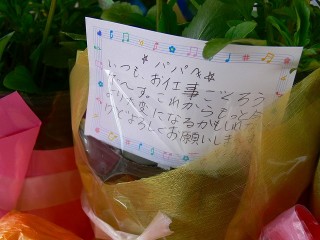 ☆パパへ☆
いつも、お仕事ごくろう
さま〜す。これからもっと
大変になるかもしれ
けどよろしくお願いしま